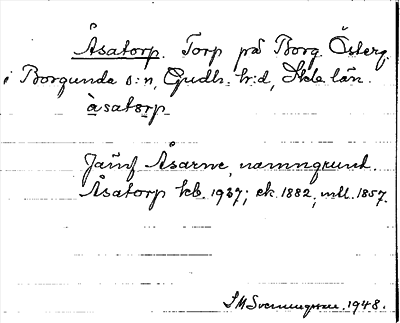 Åsatorp. Torp på Borg. Österg.
i Borgunda s:n, Gudh. h:d, Skbg län.
àsatorp
Jämf Åsarne, namngrund.
Åsatorp kb. 1937; ek. 1882, mtl. 1857.
S M Svenungsson. 1948.